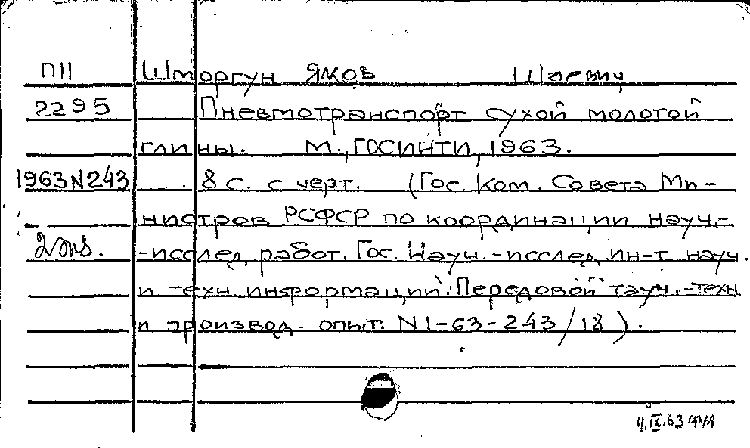 ПII Шторгун Яков Шаевич
2295 Пневмотранспорт сухой молотой
глины. М., ГОСИНТИ, 1963.
1963 N243 8 с. с черт. (Гос. Ком. Совета Ми-
нистров РСФСР по координации науч.-
2 экз. -исслед. работ. Гос. Науч.-исслед. ин-т науч.
и техн. информации. Передовой науч.-техн.
и производ. опыт. N1-63-243/18).
4.IX.63